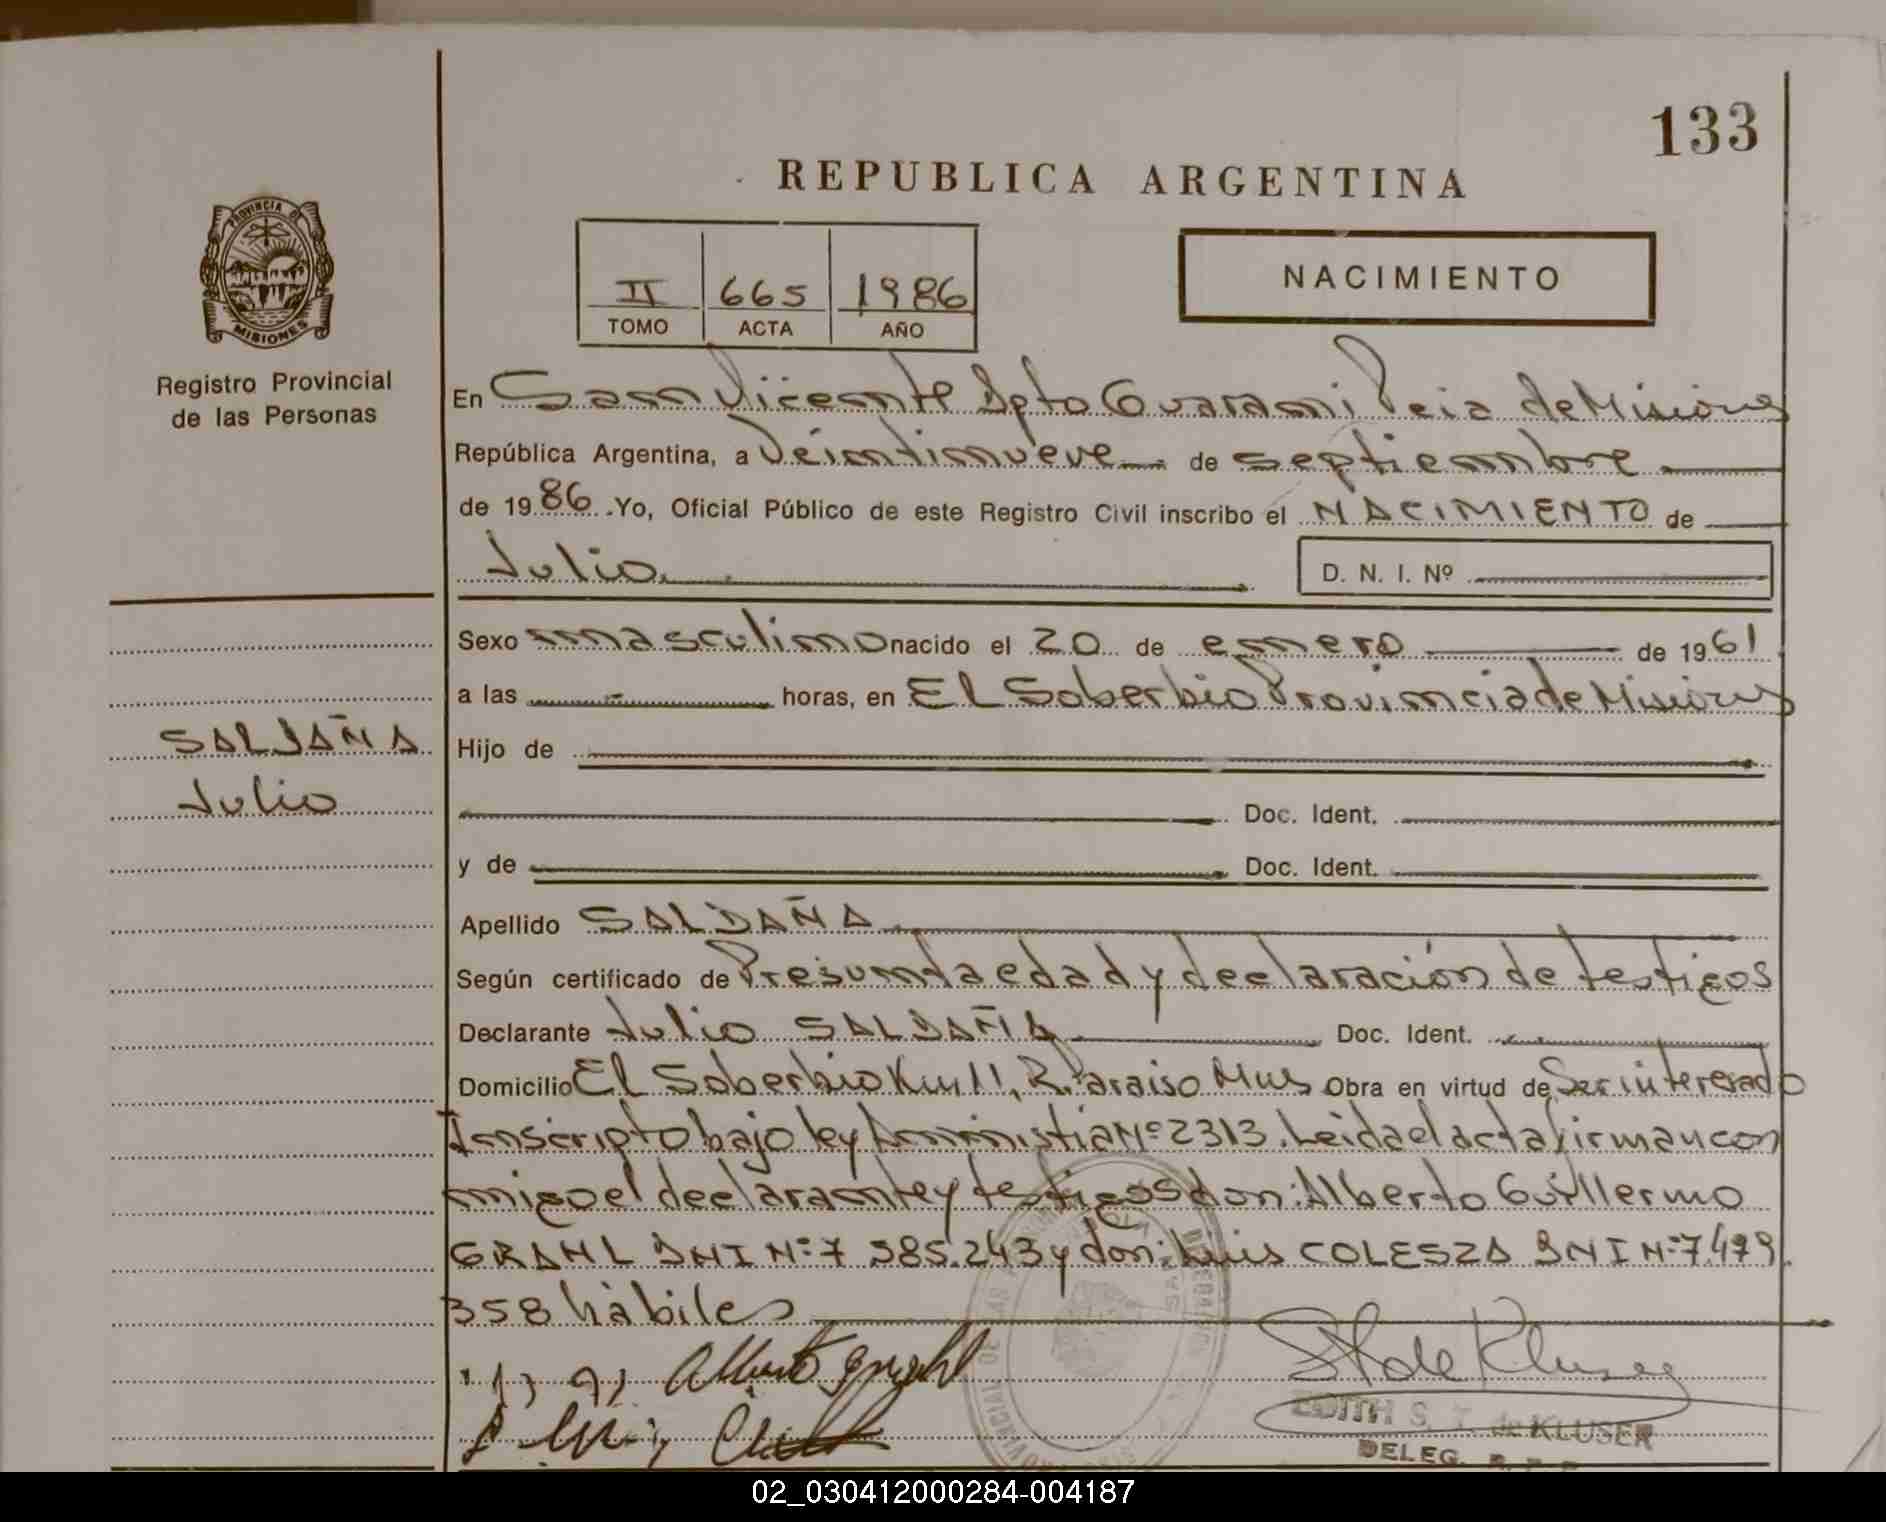 133
REPUBLICA ARGENTINA
PROVINCIA DE
MISIONES
Registro Provincial
de las Personas
II 665 1986
TOMO ACTA AÑO
NACIMIENTO
En San Vicente Dpto Guarani Pcia de Misiones
República Argentina, a Veintinueve de septiembre
de 1986. Yo, Oficial Público de este Registro Civil inscribo el NACIMIENTO de
Julio
D. N. I. Nº
Sexo masculino nacido el 20 de enero de 1961
a las horas, en El Soberbio Provincia de Misiones
SALDAÑA
Julio
Hijo de
Doc. Ident.
y de Doc. Ident.
Apellido SALDAÑA
Según certificado de Presunta edad y declaración de testigos
Declarante Julio SALDAÑA Doc. Ident.
Domicilio El Soberbio Km 11, R. Paraiso Mns Obra en virtud de Ser interesado
Inscripto bajo ley Amnistia Nº 2313. Leida el acta firman con
migo el declarante y testigos don: Alberto Guillermo
GRAHL DNI Nº 7 585.243 y don: Luis COLESZA DNI Nº 7.479.
358 hàbiles
EDITH S. T. de KLUSER
DELEG.
02_030412000284-004187